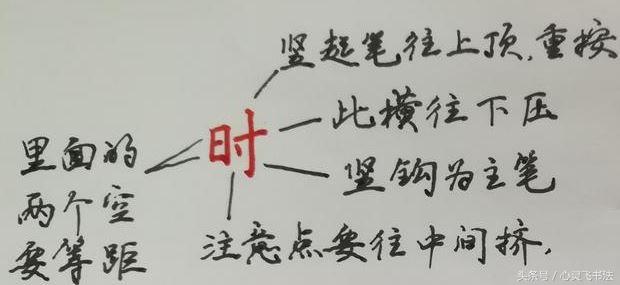 竖起笔往上顶,重按
此横往下压
时
里面的
两个空
要等距
竖钩为主笔
注意点要往中间挤,
头条号 / 心灵飞书法